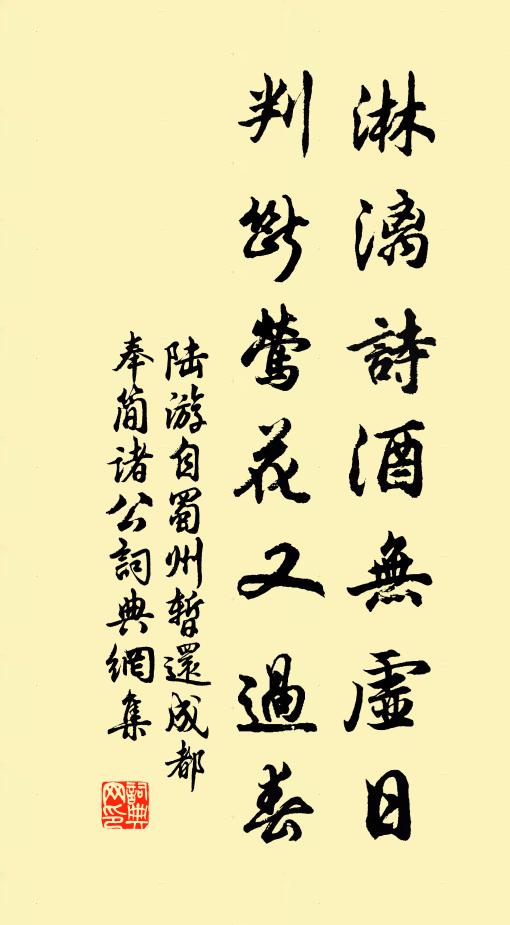 淋漓詩酒無虛日
判斷鶯花又過春
陸游自蜀州暫還成都
奉簡諸公詞典網集
詞典
网印